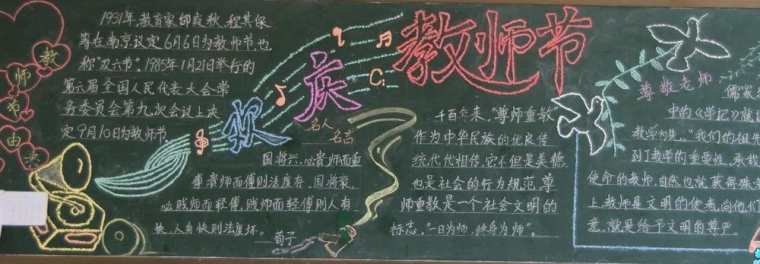 教
师
节
由
来
1931年,教育家邰爽秋、程其保
等在南京议定6月6日为教师节,也
称"双六节"。1985年1月21日举行的
第六届全国人民代表大会常
务委员会第九次会议上决
定9月10日为教师节。
欢庆
教师节
名人
名言
国将兴,必贵师而重
傅,贵师而重傅则法度存。国将衰,
必贱师而轻傅,贱师而轻傅则人有
快,人有快则法度坏。
荀子
千百年来,"尊师重教"
作为中华民族的优良传
统代代相传,它不但是美德,
也是社会的行为规范,尊
师重教是一个社会文明的
标志,"一日为师,终身为师"。
尊敬老师
儒家
中的《学记》就
教学为先","我们的祖先
到了教学的重要性,承载
使命的教师,自然也就获得
上,教师是文明的使者,向他们
意,就是给予文明的尊严。